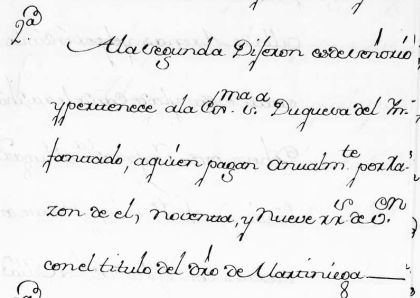 2ª
A la segunda Dijeron es de señorío
y pertenece a la Exma. Sª. Duquesa del In-
fantado, a quien pagan anualmte. por ra-
zon de el, noventa, y nueve rrs. de Von.
con el titulo del dro de Martiniega